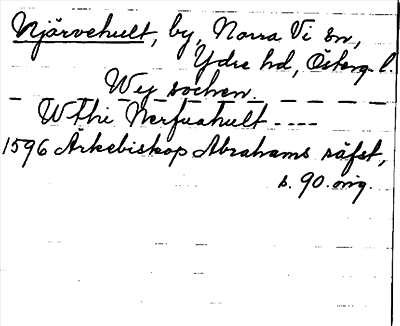 Njärvehult, by, Norra Vi sn,
Ydre hd, Österg. l.
Wej sochen.
Wthi Nerfuahult ----
1596 Ärkebiskop Abrahams räfst,
s. 90. orig.